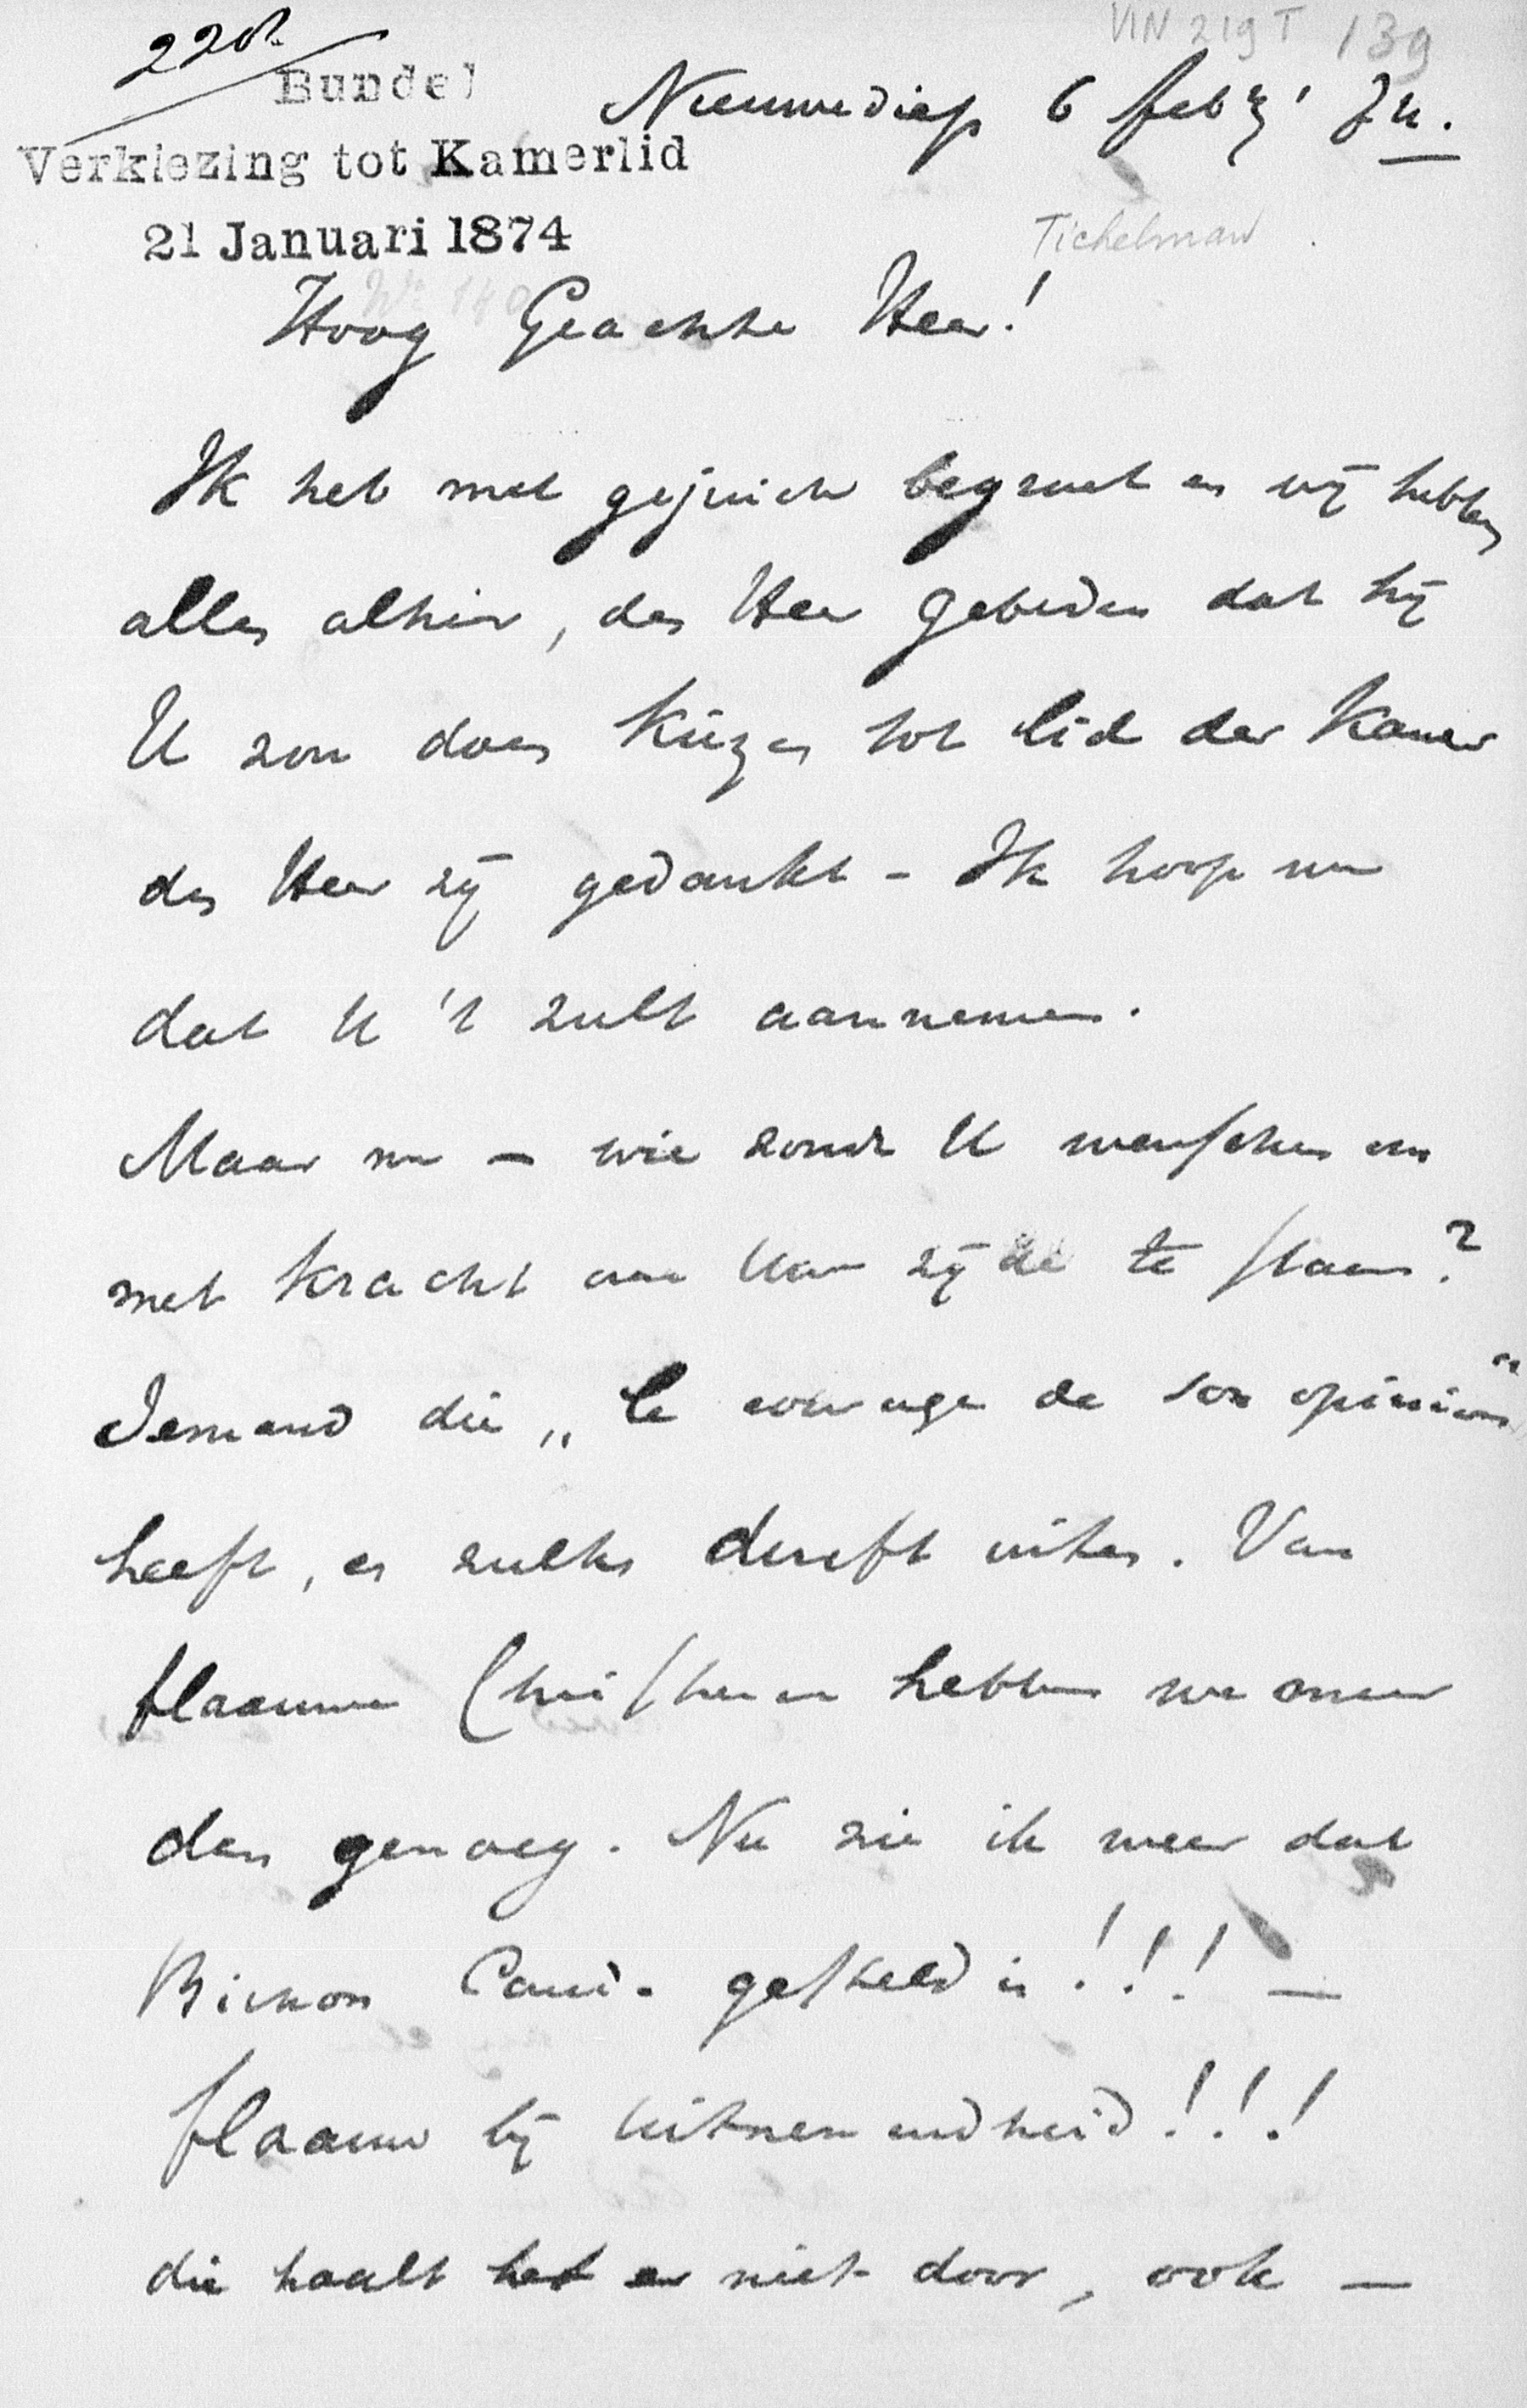 VIN 219 T 139
Bundel
Verkiezing tot Kamerlid
21 Januari 1874
Nieuwediep 6 feby' 74.
Tichelman
Hoog Geachte Heer!
Ik heb met gejuich begroet en wij hebben
allen alhier, den Heer gebeden dat hij
U zou doen kiezen tot lid der Kamer
den Heer zij gedankt - Ik hoop nu
dat U 't zult aannemen.
Maar nu - wie zoudt U wenschen om
met kracht aan Uw zijde te staan?
Iemand die „le courage de son opinion"
heeft, en zulks durft uiten. Van
flaauwe Christenen hebben we meer
dan genoeg. Nu zie ik weer dat
Bichon Cand. gesteld is!!! —
flaauw bij uitnemendheid!!!
die haalt het er niet door, ook —